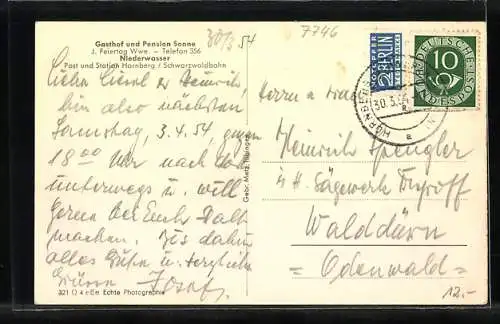 Gasthof und Pension Sonne
J. Feiertag Wwe. – Telefon 356
Niederwasser
Post und Station Hornberg / Schwarzwaldbahn
30/3 54
7746
Liebe Liesel u. Heinrich,
bin also nächsten
Samstag, 3.4.54, gegen
18 00 Uhr nach dort
unterwegs u. will
gerne bei Euch Halt
machen. Bis dahin
alles Gute u. herzliche
Grüsse Josef
321 Q 4 Echte Photographie
Gebr. Metz, Tübingen
NOTOPFER
2 BERLIN
STEUERMARKE
HORNBERG
30.3.54
a
DEUTSCHE
BUNDESPOST
10
Herrn u. Frau
Heinrich Spengler
Sägewerk
Walldürn
= Odenwald =
12.-